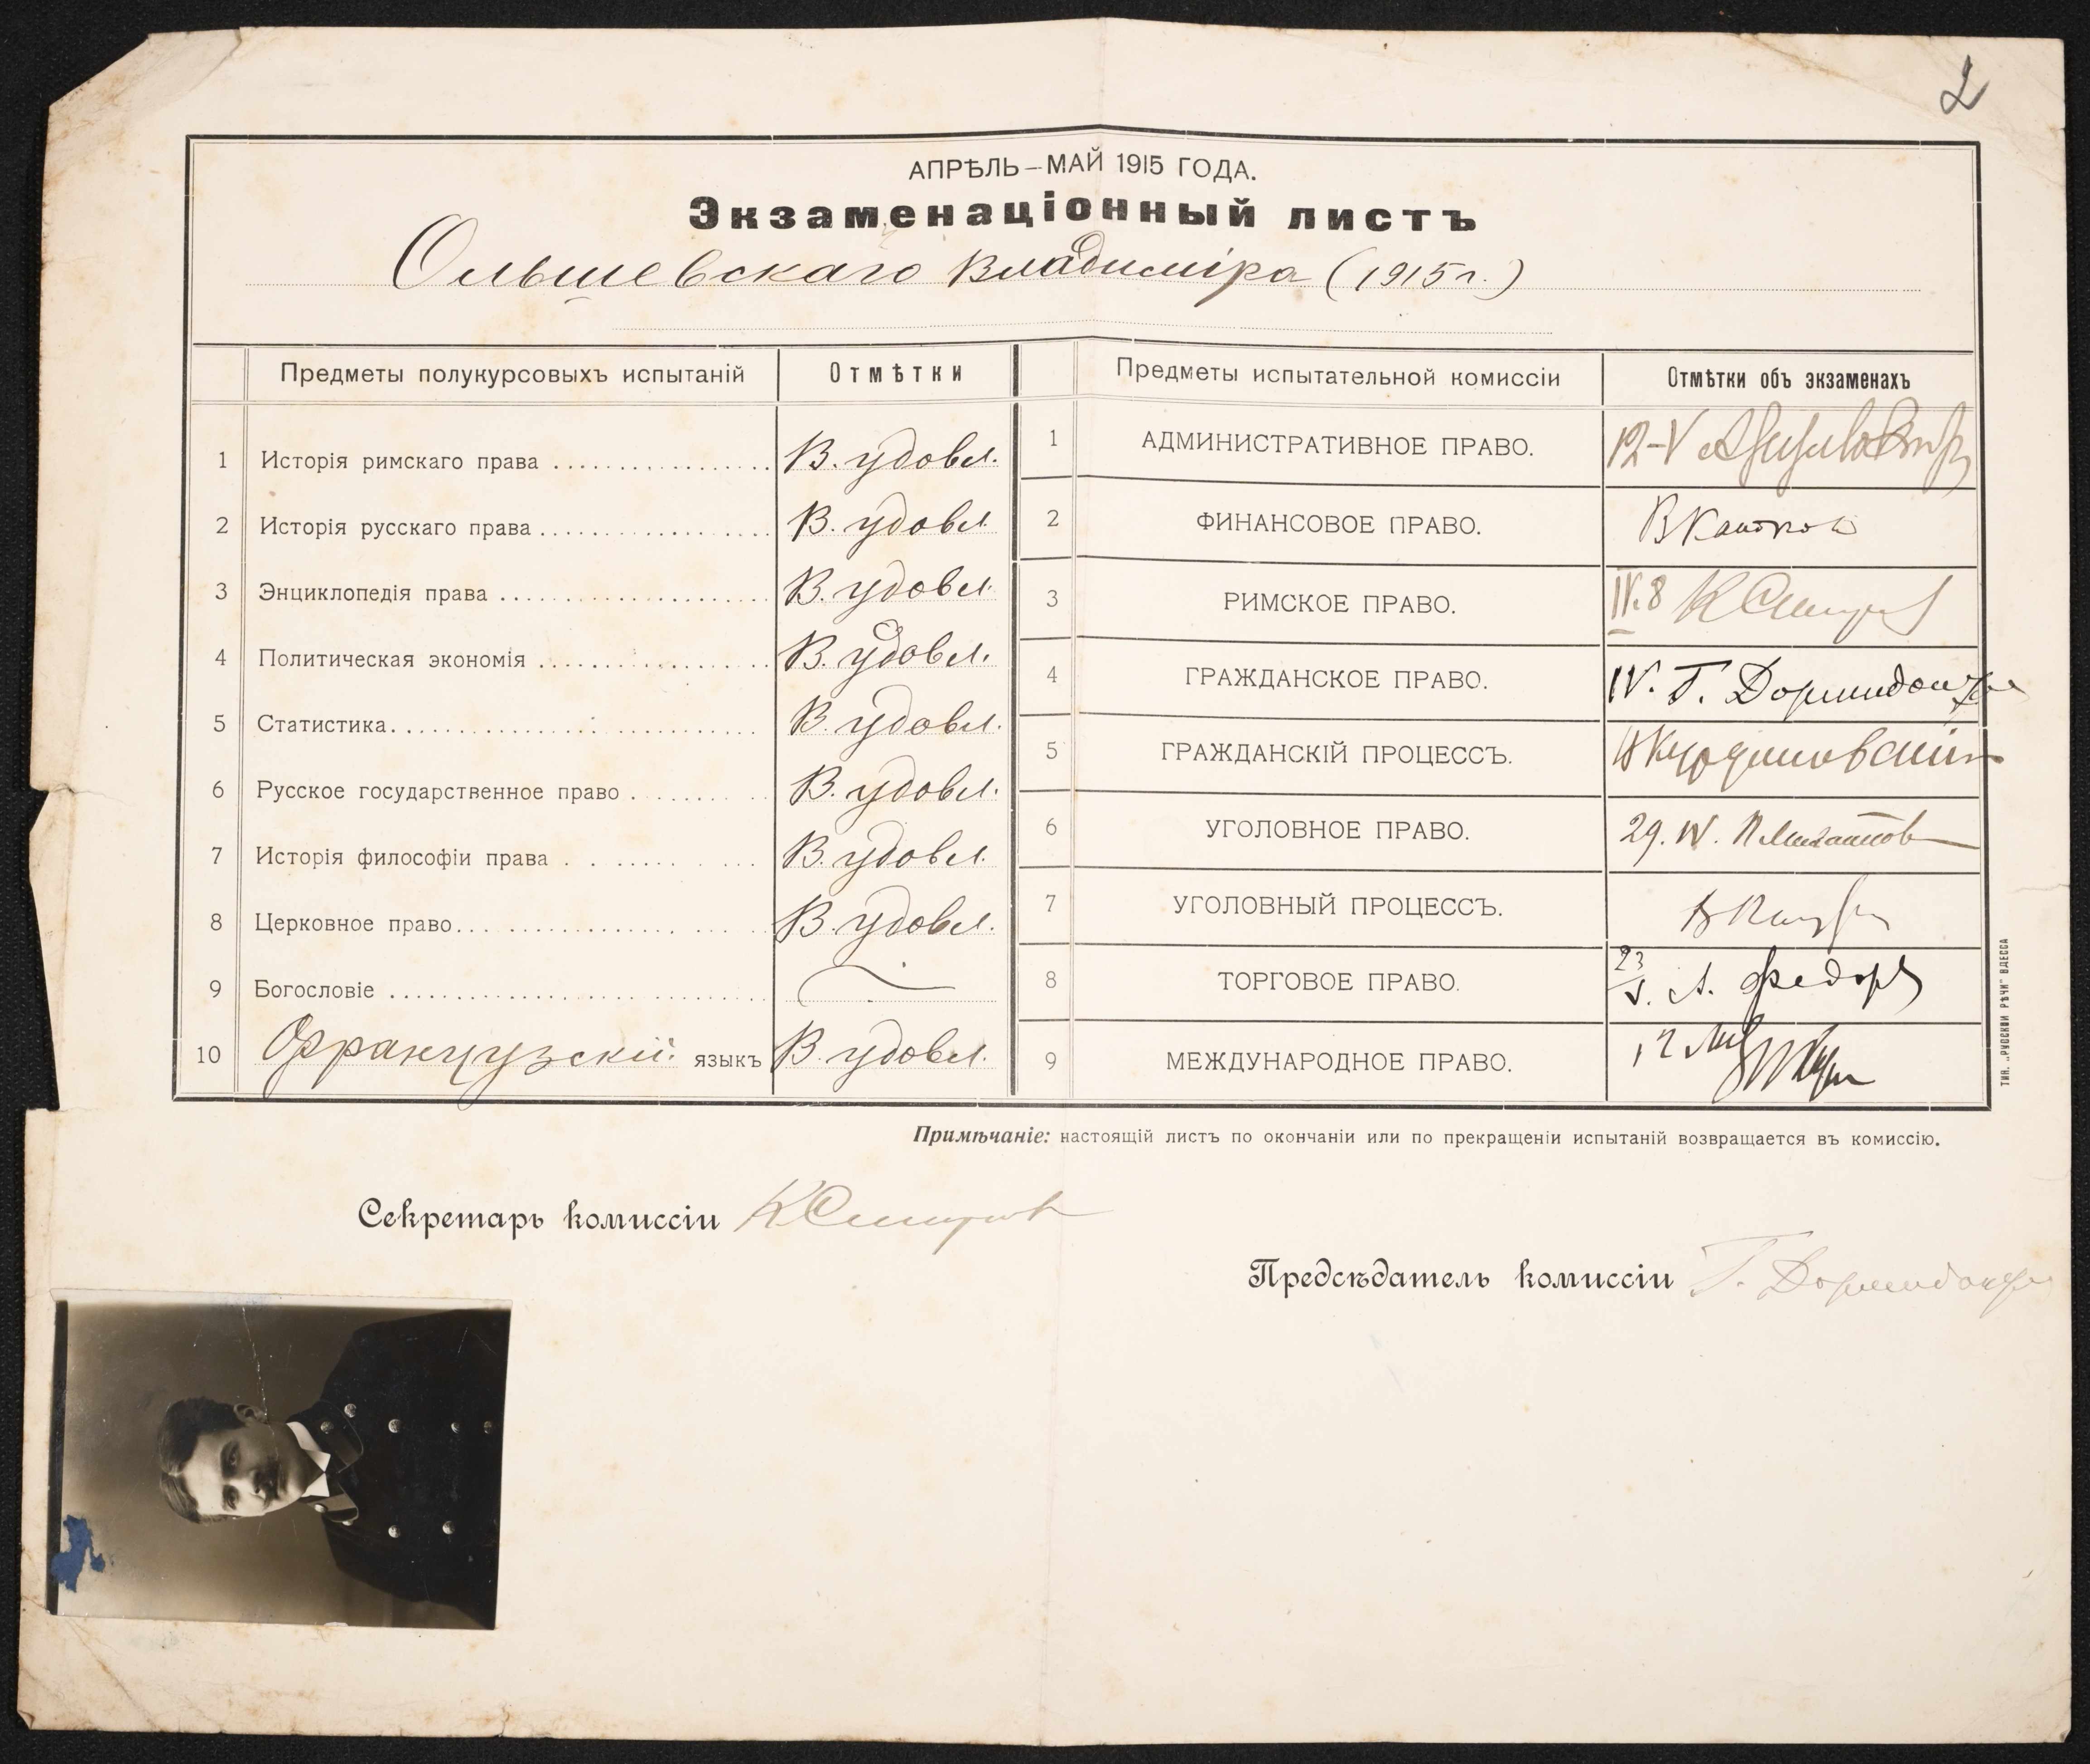 2
АПРѢЛЬ – МАЙ 1915 ГОДА.
Экзаменаціонный листъ
Ольшевскаго Владиміра (1915 г.)
Предметы полукурсовыхъ испытаній Отмѣтки
1 Исторія римскаго права В. удовл.
2 Исторія русскаго права В. удовл.
3 Энциклопедія права В. удовл.
4 Политическая экономія В. удовл.
5 Статистика В. удовл.
6 Русское государственное право В. удовл.
7 Исторія философіи права В. удовл.
8 Церковное право В. удовл.
9 Богословіе
10 Французскій языкъ В. удовл.
Предметы испытательной комиссіи Отмѣтки объ экзаменахъ
1 АДМИНИСТРАТИВНОЕ ПРАВО. 12-V
2 ФИНАНСОВОЕ ПРАВО. В Катков
3 РИМСКОЕ ПРАВО. IV.8 К Смирнов
4 ГРАЖДАНСКОЕ ПРАВО. IV. Г. Дормидонтов
5 ГРАЖДАНСКІЙ ПРОЦЕССЪ. В Курдиновскій
6 УГОЛОВНОЕ ПРАВО. 29. IV. П Михайлов
7 УГОЛОВНЫЙ ПРОЦЕССЪ.
8 ТОРГОВОЕ ПРАВО. 23/V. А. Федоров
9 МЕЖДУНАРОДНОЕ ПРАВО. 12
Примѣчаніе: настоящій листъ по окончаніи или по прекращеніи испытаній возвращается въ комиссію.
ТИП. „РУССКОЙ РѢЧИ" ОДЕССА
Секретарь комиссіи К Смирнов
Предсѣдатель комиссіи Г. Дормидонтов